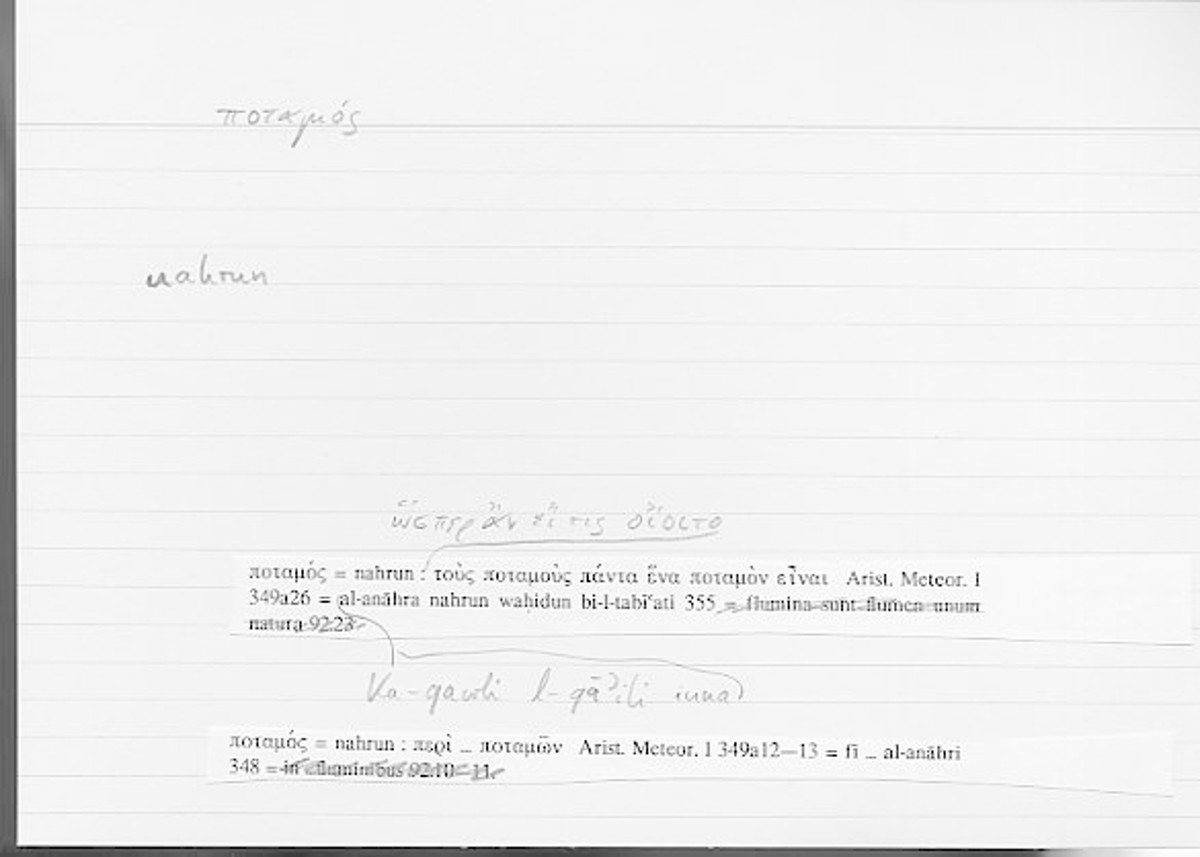 ποταμός
nahrun
ὥσπερ ἂν εἴ τις οἴοιτο
ποταμός = nahrun : τοὺς ποταμοὺς πάντα ἕνα ποταμὸν εἶναι Arist. Meteor. I
349a26 = al-anāhra nahrun waḥidun bi-l-tabīʿati 355 = flumina sunt flumen unum
natura 92.23
Ka-qawli l-qāʾili inna
ποταμός = nahrun : περὶ _ ποταμῶν Arist. Meteor. I 349a12–13 = fī _ al-anāhri
348 = in fluminibus 92.10–11